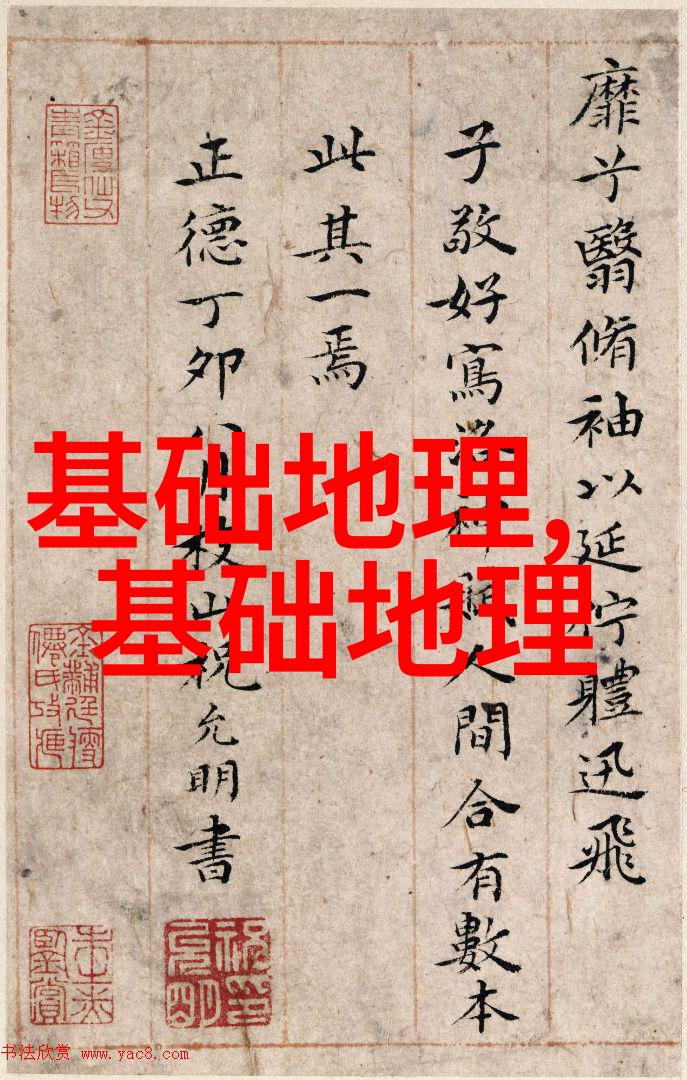 靡兮翳脩袖以延佇體迅飛
子敬好寫洛神賦人間合有數本
此其一焉
正德丁卯八月枝山祝允明書
基础地理,
基础地理
书法欣赏 www.yac8.com